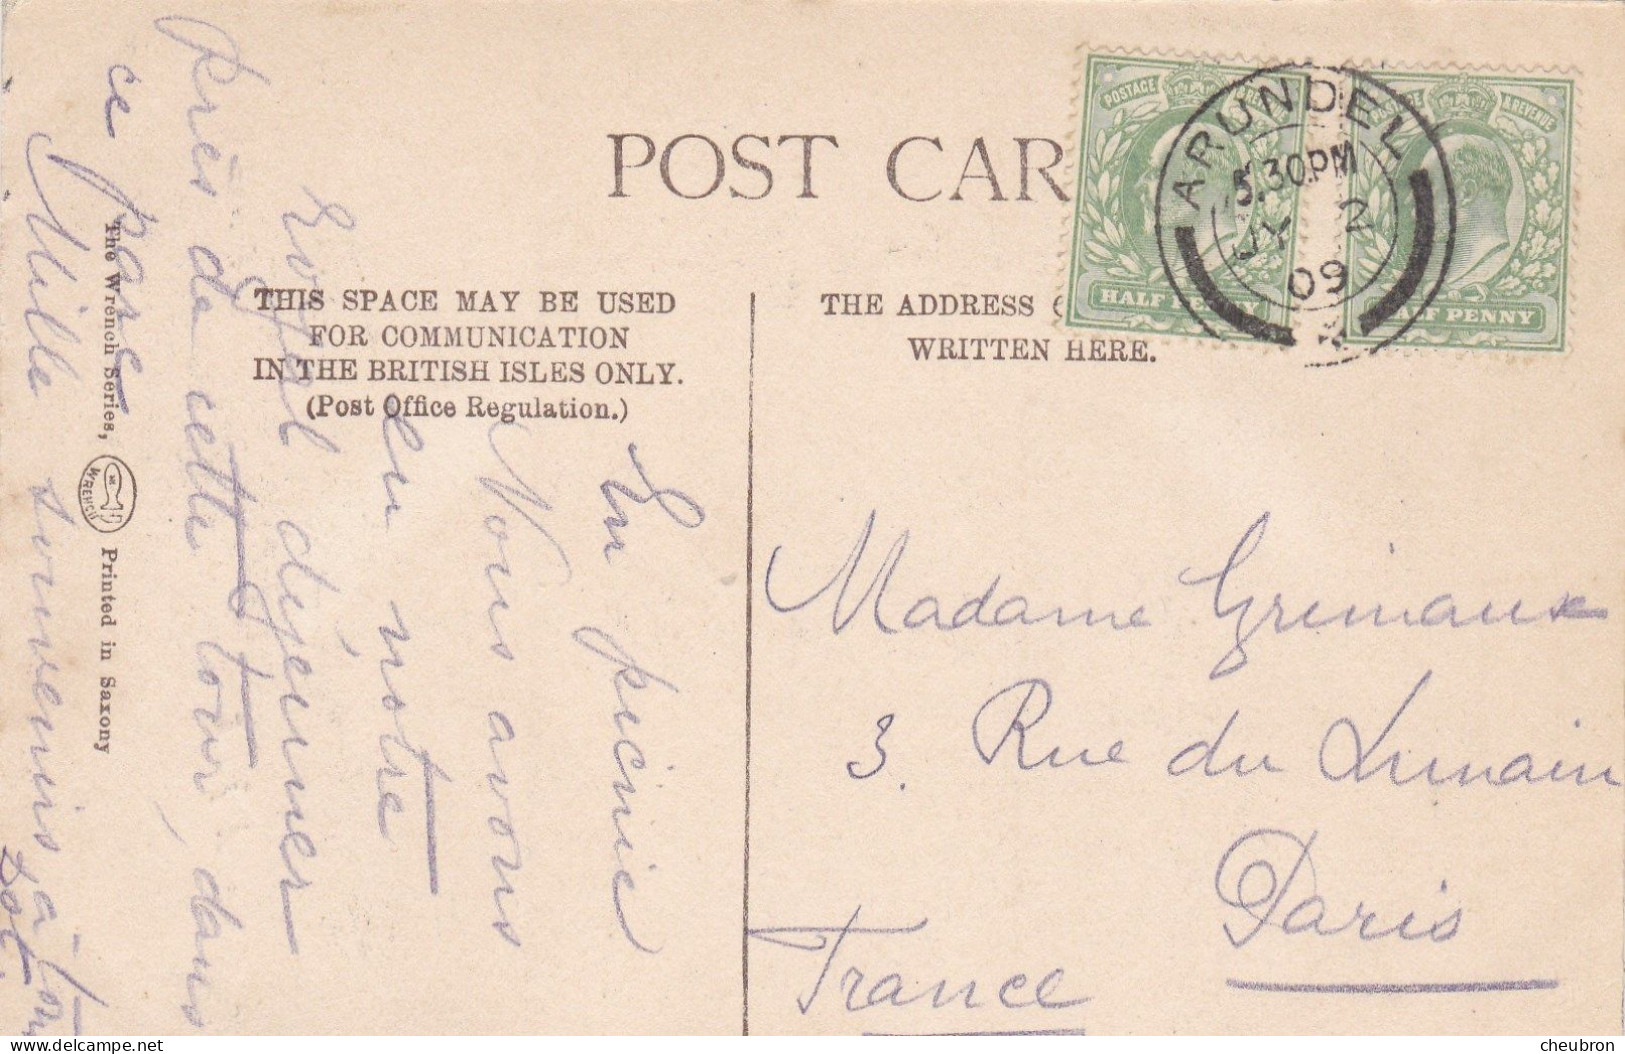 POST CAR
POSTAGE & REVENUE
HALF PENNY
POSTAGE & REVENUE
HALF PENNY
ARUNDEL
5.30PM
JY 2
09
THIS SPACE MAY BE USED
FOR COMMUNICATION
IN THE BRITISH ISLES ONLY.
(Post Office Regulation.)
THE ADDRESS
WRITTEN HERE.
En picnic
Nous avons
eu notre
déjeuner
près de cette tour, dans
ce parc
Mille souvenirs à tous
Dot.
The Wrench Series, WRENCH Printed in Saxony
Madame Grimaux
3. Rue du Lunain
Paris
France
delcampe.net
cheubron